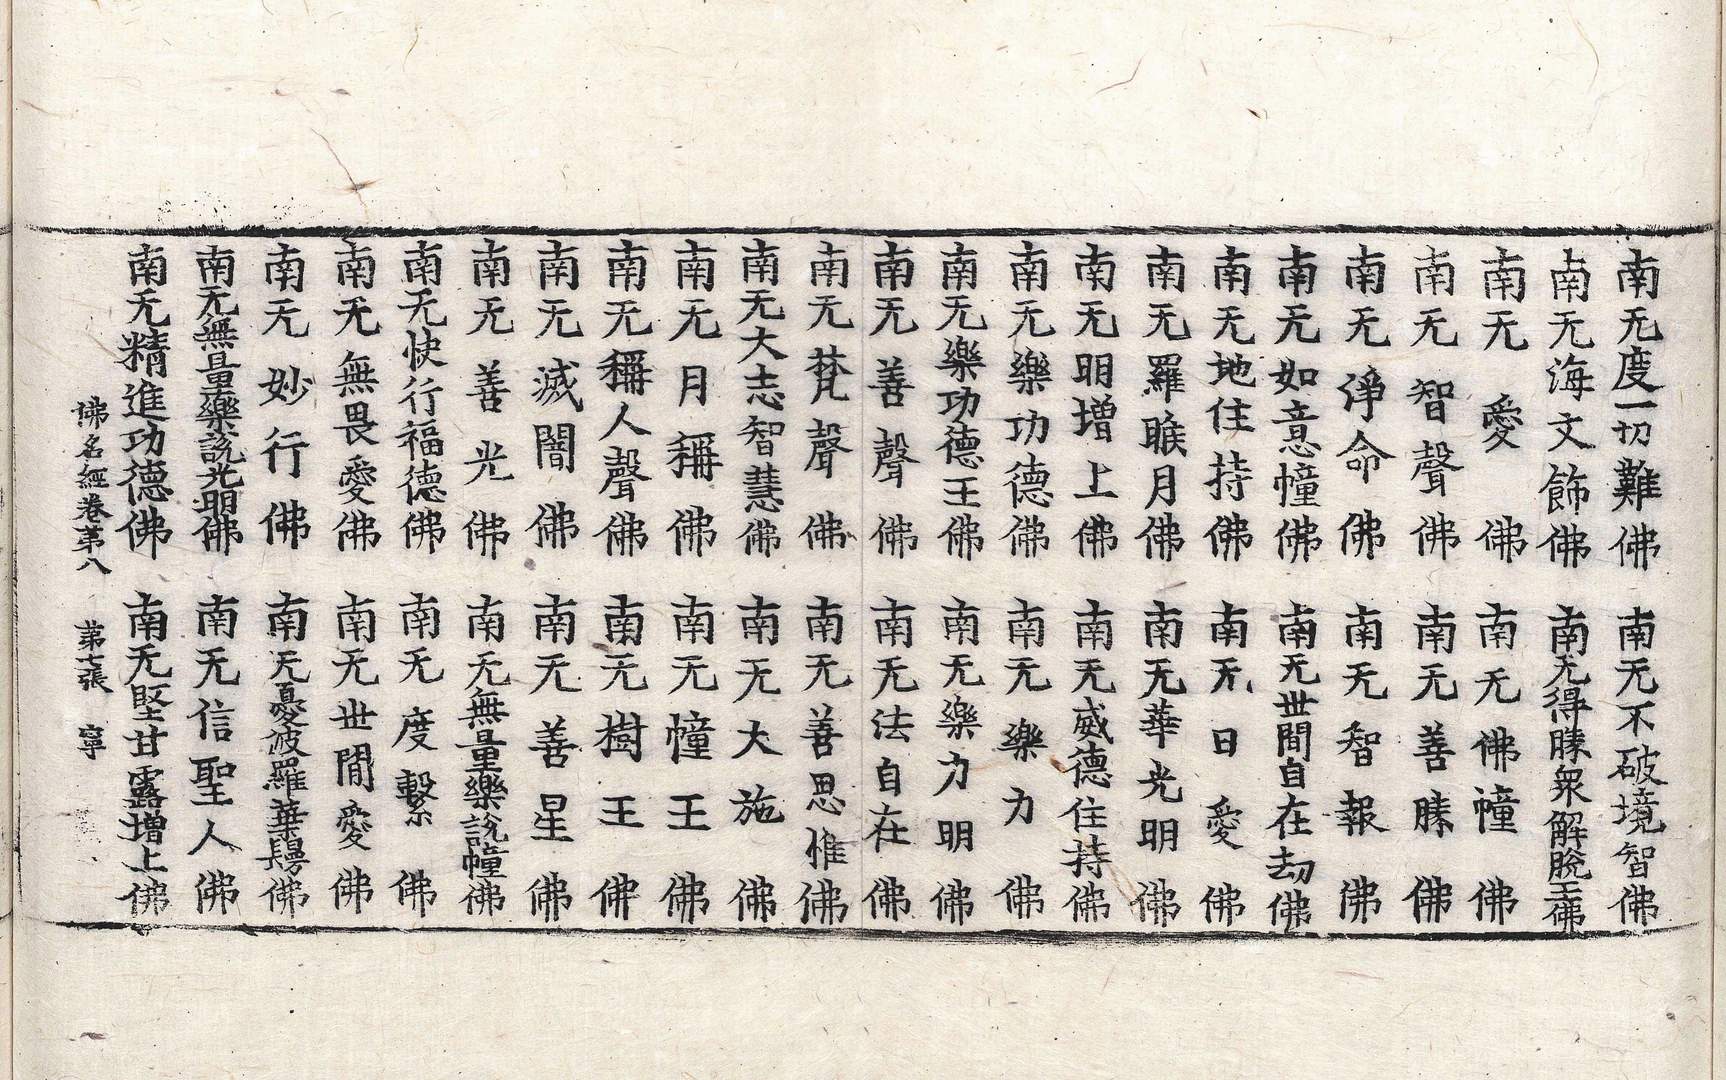 南无度一切難佛　南无不破境智佛
南无海文飾佛　南无得勝衆解脫王佛
南无愛佛　南无佛幢佛
南无智聲佛　南无善勝佛
南无淨命佛　南无智報佛
南无如意幢佛　南无世間自在劫佛
南无地住持佛　南无日愛佛
南无羅睺月佛　南无華光明佛
南无明增上佛　南无威德住持佛
南无樂功德佛　南无樂力佛
南无樂功德王佛　南无樂力明佛
南无善聲佛　南无法自在佛
南无梵聲佛　南无善思惟佛
南无大志智慧佛　南无大施佛
南无月稱佛　南无幢王佛
南无稱人聲佛　南无樹王佛
南无滅闇佛　南无善星佛
南无善光佛　南无無量樂說幢佛
南无快行福德佛　南无度繫佛
南无無畏愛佛　南无世間愛佛
南无妙行佛　南无憂波羅華鬘佛
南无無量樂說光明佛　南无信聖人佛
南无精進功德佛　南无堅甘露增上佛
佛名經卷苐八　苐七張　寧